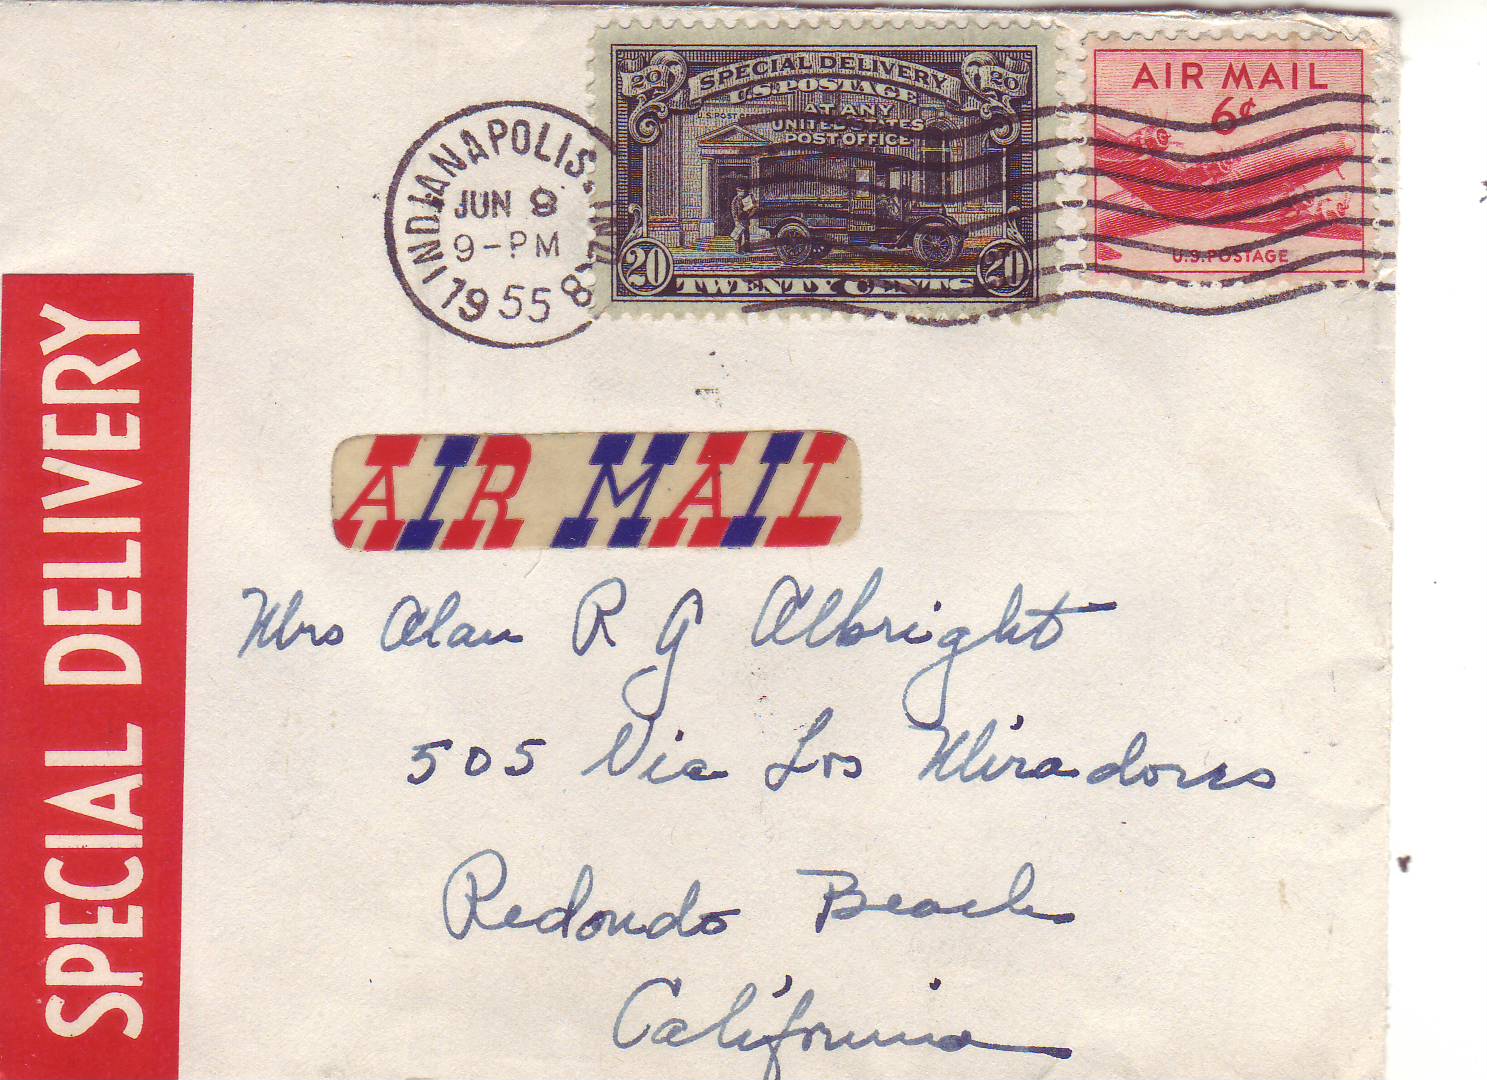 SPECIAL DELIVERY
INDIANAPOLIS. IND. 8
JUN 9
9-PM
1955
20 SPECIAL DELIVERY 20
U.S. POSTAGE
AT ANY
UNITED STATES
POST OFFICE
U.S. POST
20 TWENTY CENTS 20
AIR MAIL
6¢
U.S. POSTAGE
AIR MAIL
Mrs Alan R G Albright
505 Via Los Miradores
Redondo Beach
California